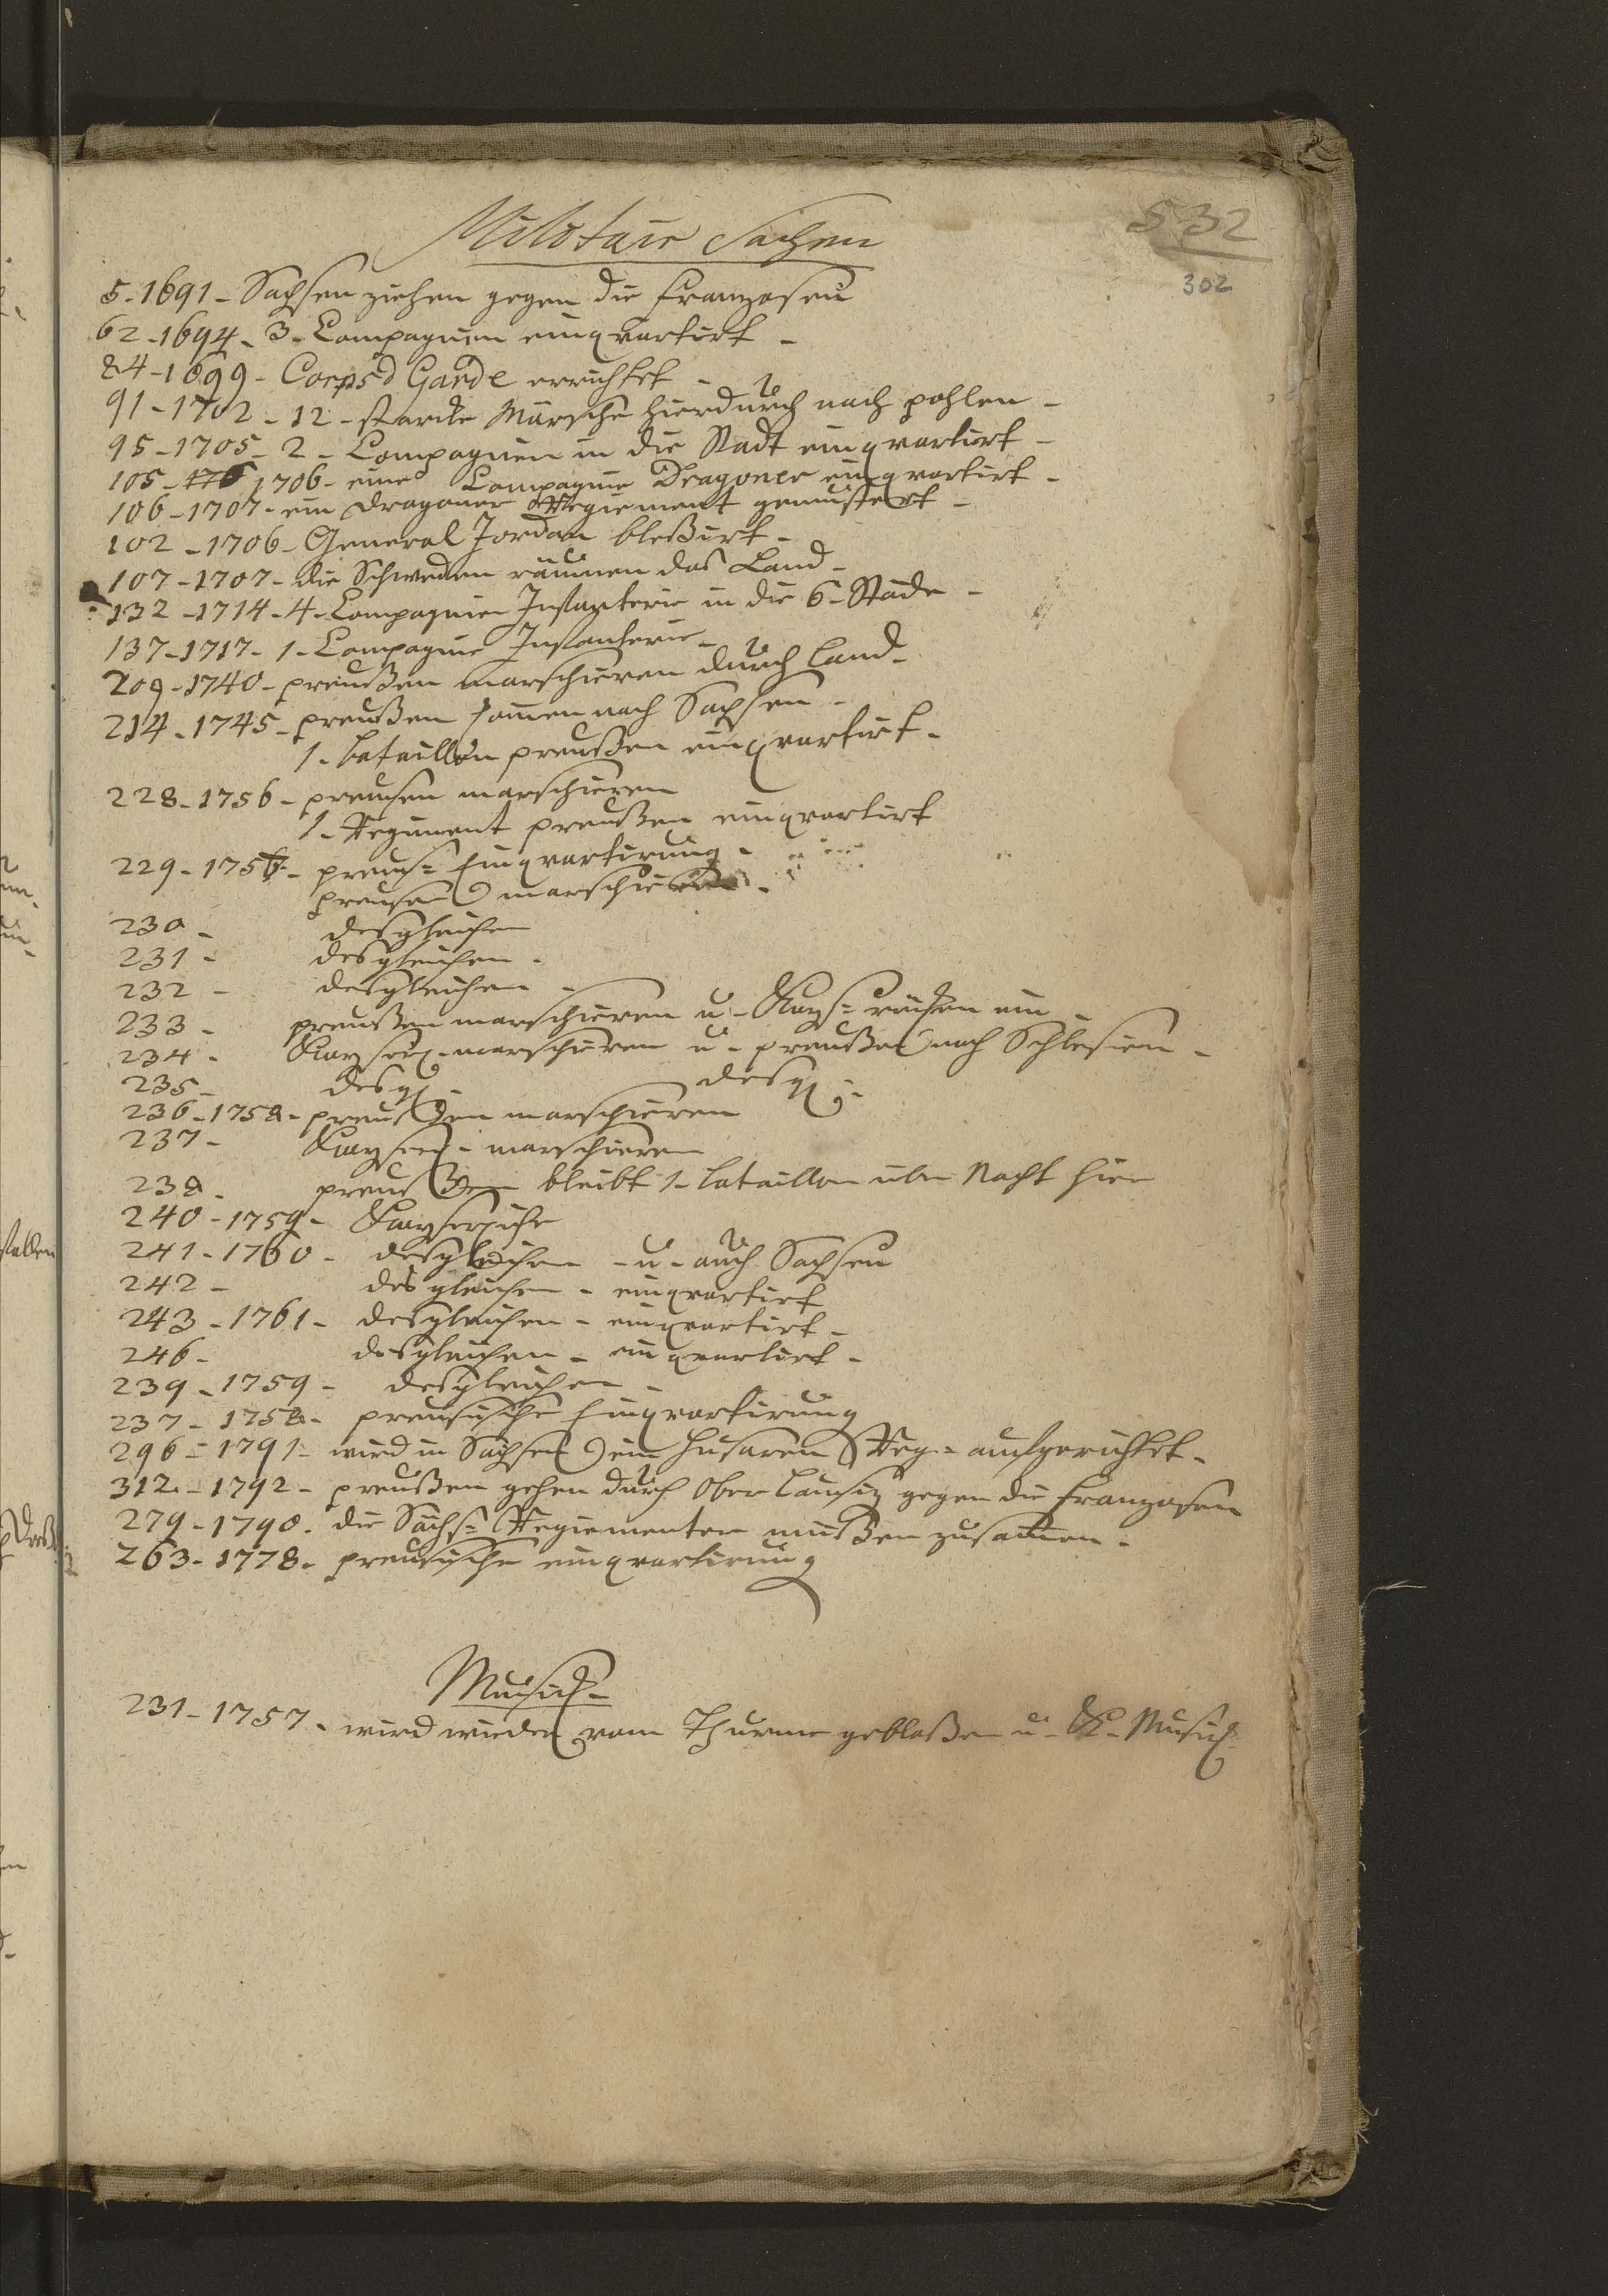 Militair Sachen
532
302
5-1691- Sachsen ziehen gegen die Franzosen
62-1694-3-Compagnien einqvartirt-
84-1699- Corps d Garde errichtet-
91-1702-12-starcke Märsche hierdurch nach pohlen-
95-1705-2-Compagnien in die Stadt einqvartirt-
105-176 1706- eine Compagnie Dragoner einqvartirt-
106-1707- ein Dragoner Regiement gemustert-
102-1706- General Jordan bleßirt-
107-1707- die Schweden räumen das Land-
132-1714-4-Compagnien Infanterie in die 6-Städe-
137-1717-1-Compagnie Infanterie-
209-1740- preußen marschieren durch Land-
214-1745- preußen komen nach Sachsen-
1-bataillon preußen einqvartirt-
228-1756- preusen marschieren
1-Regiment preußen einqvartirt
229-1756- preus= Einqvartirung-
preusen marschieren-
230- desgleichen
231- desgleichen-
232- desgleichen-
233- preußen marschieren u- Kays= rücken ein-
234- Kayserl-marschieren u- preußen nach Schlesien-
235- desgl- desgl-
236-1758- preußen marschieren
237- Kayserl- marschieren
238- preußen bleibt 1-bataillon über Nacht hier
240-1759- Kayserliche
241-1760- desgleichen -u- auch Sachsen
242- desgleichen- einqvartirt
243-1761- desgleichen- einqvartirt-
246- desgleichen- einqvartirt-
239-1759- desgleichen-
237-1758- preusische Einqvartirung
296-1791- wird in Sachsen ein Husaren Reg= aufgerichtet-
312-1792- preußen gehen durch Ober Lausiz gegen die Franzosen
279-1790- die Sächs= Regiementer müßen zusamen-
263-1778- preusische einqvartirung
Musick-
231-1757- wird wieder vom Thurme geblaßen u- K- Musick